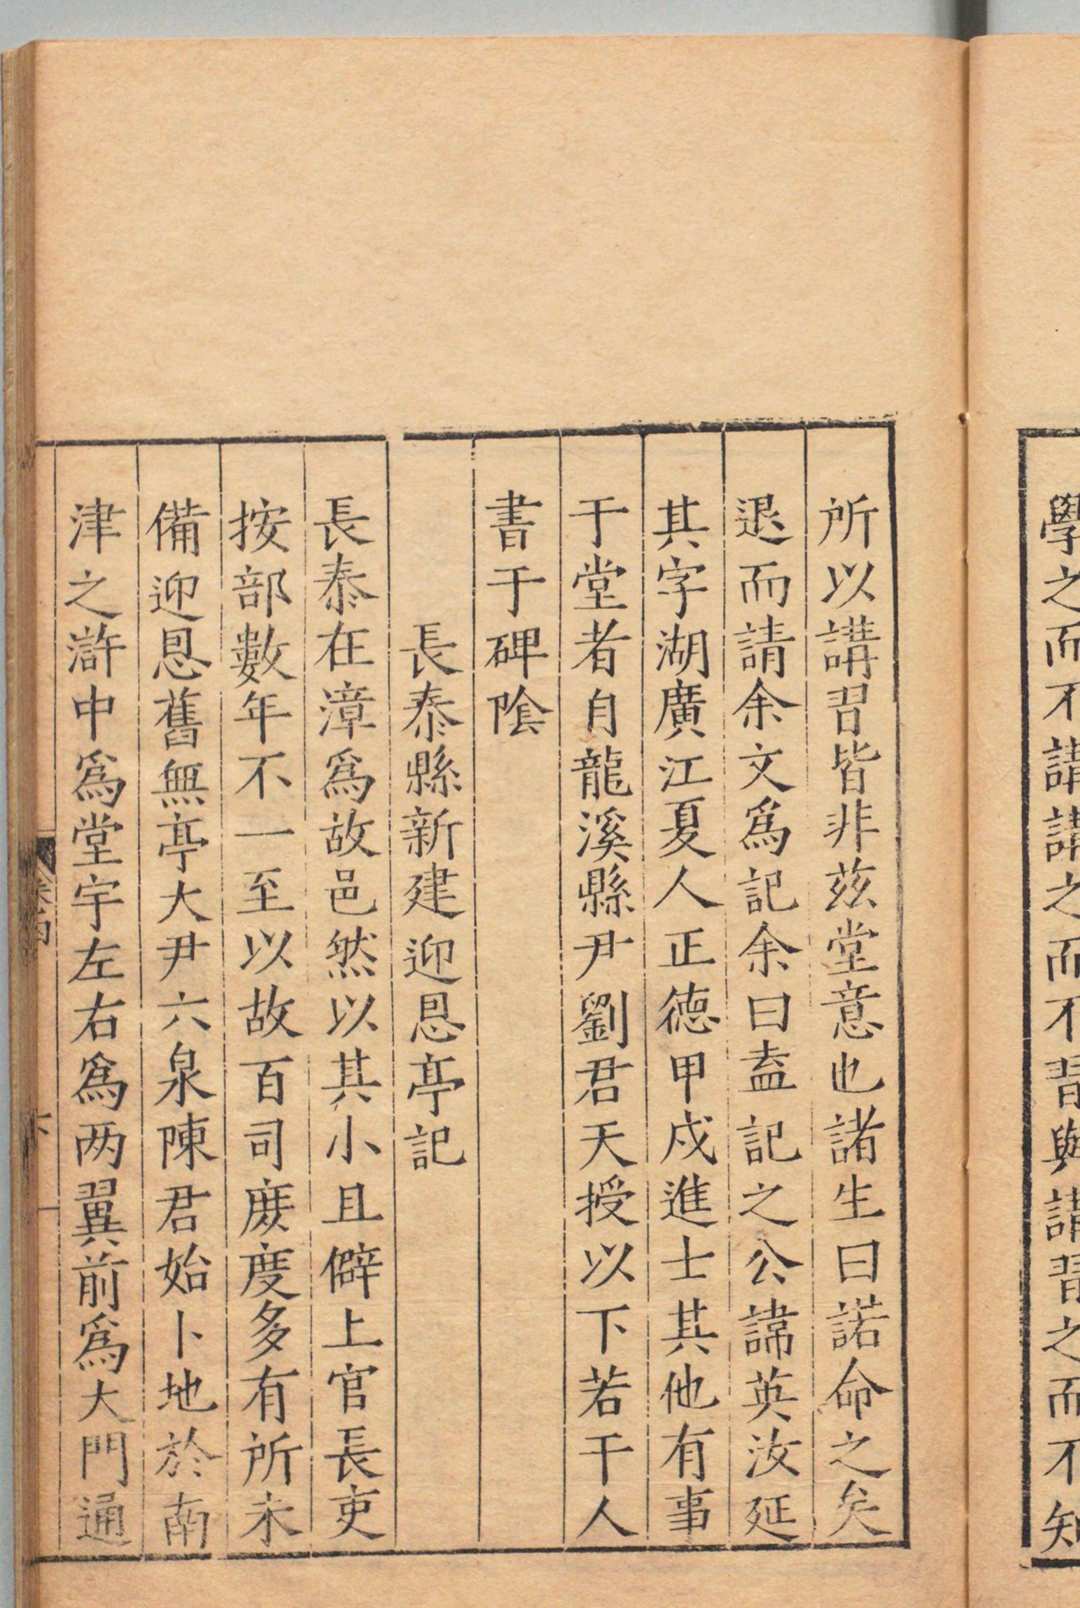 學之而不講講之而不習與講習之而不知
所以講習皆非茲堂意也諸生曰諾命之矣
退而請余文爲記余曰盍記之公諱英汝延
其字湖廣江夏人正德甲戍進士其他有事
于堂者自龍溪縣尹劉君天授以下若干人
書于碑陰
長泰縣新建迎恩亭記
長泰在漳爲故邑然以其小且僻上官長吏
按部數年不一至以故百司庶度多有所未
備迎恩舊無亭大尹六泉陳君始卜地於南
津之滸中爲堂宇左右爲两翼前爲大門通